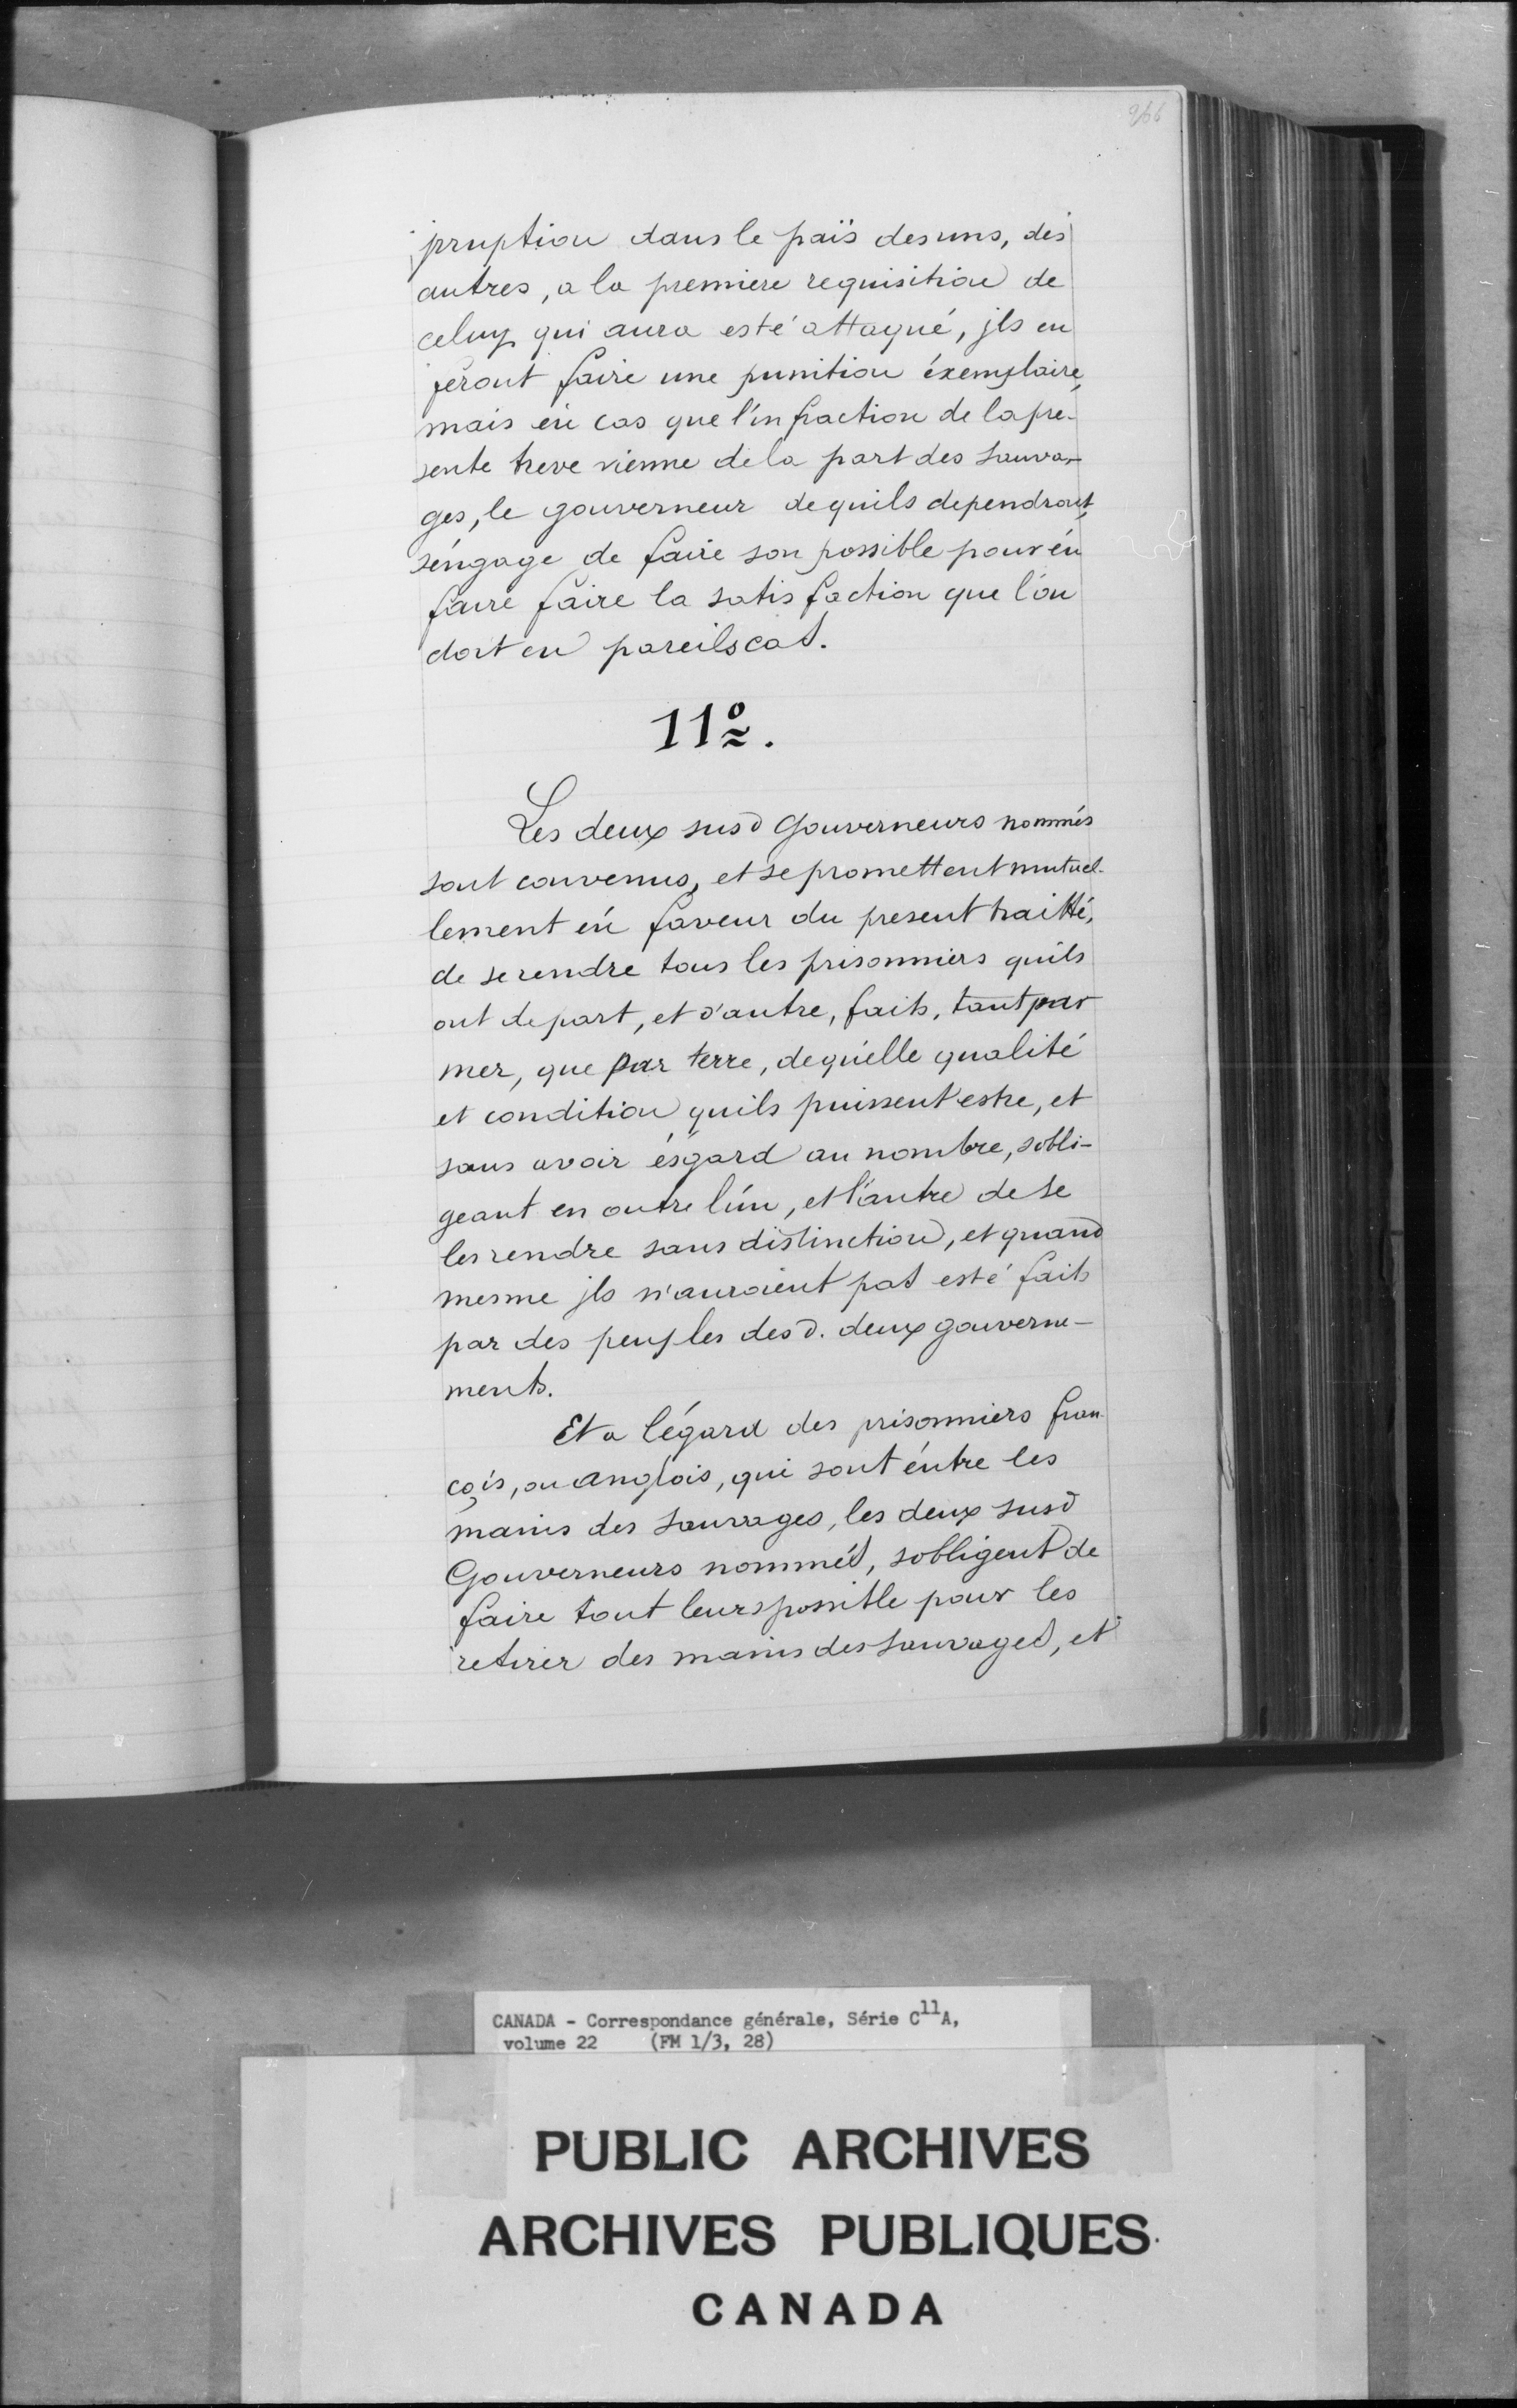 266
jrruption dans le païs desuns, des
autres, a la premiere requisition de
celuy qui aura esté attaqué, jls en
feront faire une punition éxemplaire,
mais én cas que l'infraction de lapre-
sente treve vienne dela part des sauva-
ges, le gouverneur dequils dependront,
s'éngage de faire son possible pour én
faire faire la satisfaction que l'on
doit en pareilscas.
11º.
Les deux susd Gouverneurs nommés
sont convenus, et sepromettent mutuel-
lement én faveur du present traitté,
de serendre tous les prisonniers quils
ont depart, et d'autre, faits, tant par
mer, que par terre, dequelle qualité
et condition quils puissent estre, et
sans avoir ésgard au nombre, sobli-
geant en outre l'un, et l'autre de se
les rendre sans distinction, et quand
mesme jls n'auroient pas esté faits
par des peuples desd. deux gouverne-
ments.
Et a l'égard des prisonniers fran-
çois, ou anglois, qui sont éntre les
mains des sauvages, les deux susd
Gouverneurs nommés, sobligent de
faire tout leurspossible pour les
retirer des mains des sauvages, et
CANADA - Correspondance générale, Série C11A,
volume 22 (FM 1/3, 28)
PUBLIC ARCHIVES
ARCHIVES PUBLIQUES
CANADA